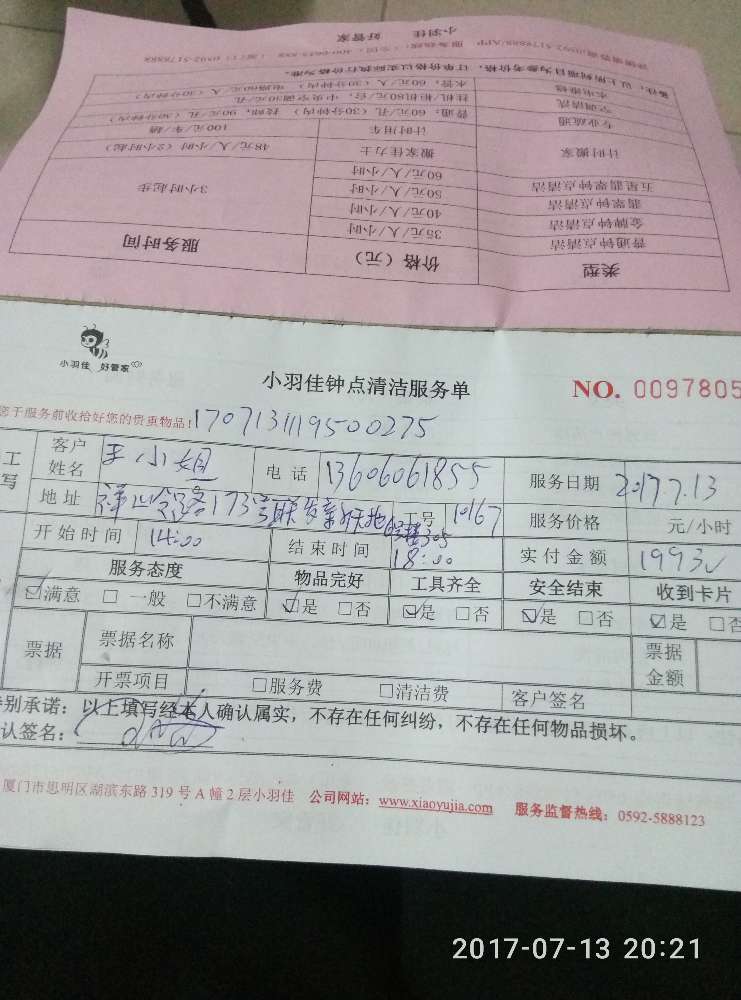 小羽佳 好管家
类型 价格（元） 服务时间
普通钟点清洁 35元/人/小时 3小时起步
金牌钟点清洁 40元/人/小时
翡翠钟点清洁 50元/人/小时
五星翡翠钟点清洁 60元/人/小时
计时搬家 搬家佳力士 48元/人/小时（2小时起）
计时用车 100元/车/趟
专业疏通 普通：60元/孔（30分钟内） 技师：90元/孔（30分钟内）
空调清洗 挂机、柜机180元/台，中央空调30元/孔
水电维修 水管：60元/人（30分钟内） 电路60元/人（30分钟内）
备注：以上所列项目为参考价格，订单价格以实际执行价格为准。
小羽佳 好管家
小羽佳钟点清洁服务单
NO. 0097805
您于服务前收拾好您的贵重物品！ 1707131119500275
工 客户姓名 王小姐 电话 13606061855 服务日期 2017.7.13
写 地址 祥岭路173号联发新天地 305 工号 10167 服务价格 元/小时
开始时间 14:00 结束时间 18:00 实付金额 199元
服务态度 物品完好 工具齐全 安全结束 收到卡片
☑满意 □一般 □不满意 ☑是 □否 ☑是 □否 ☑是 □否 ☑是 □否
票据 票据名称 票据金额
开票项目 □服务费 □清洁费 客户签名
特别承诺：以上填写经本人确认属实，不存在任何纠纷，不存在任何物品损坏。
认签名：
厦门市思明区湖滨东路319号A幢2层小羽佳 公司网站：www.xiaoyujia.com 服务监督热线：0592-5888123
2017-07-13 20:21